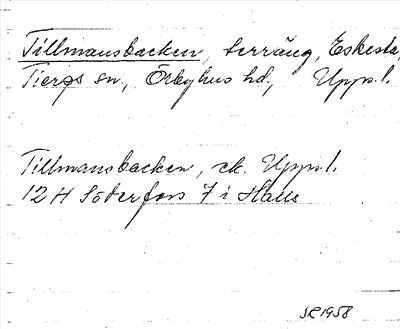 Tillmansbacken, terräng, Eskesta,
Tierps sn, Örbyhus hd, Upps. l.
Tillmansbacken, ek. Upps. l.
12 H Söderfors 7 i Haus
SR 1958